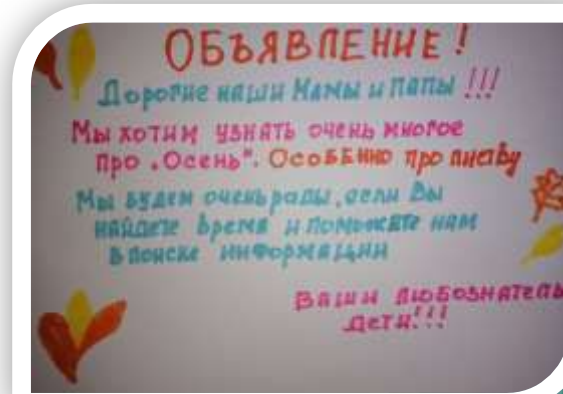 ОБЪЯВЛЕНИЕ!
Дорогие наши Мамы и папы!!!
Мы хотим узнать очень многое
про „Осень". Особенно про листву
Мы будем очень рады, если Вы
найдете время и поможете нам
в поиске информации
Ваши любознатель
дети!!!